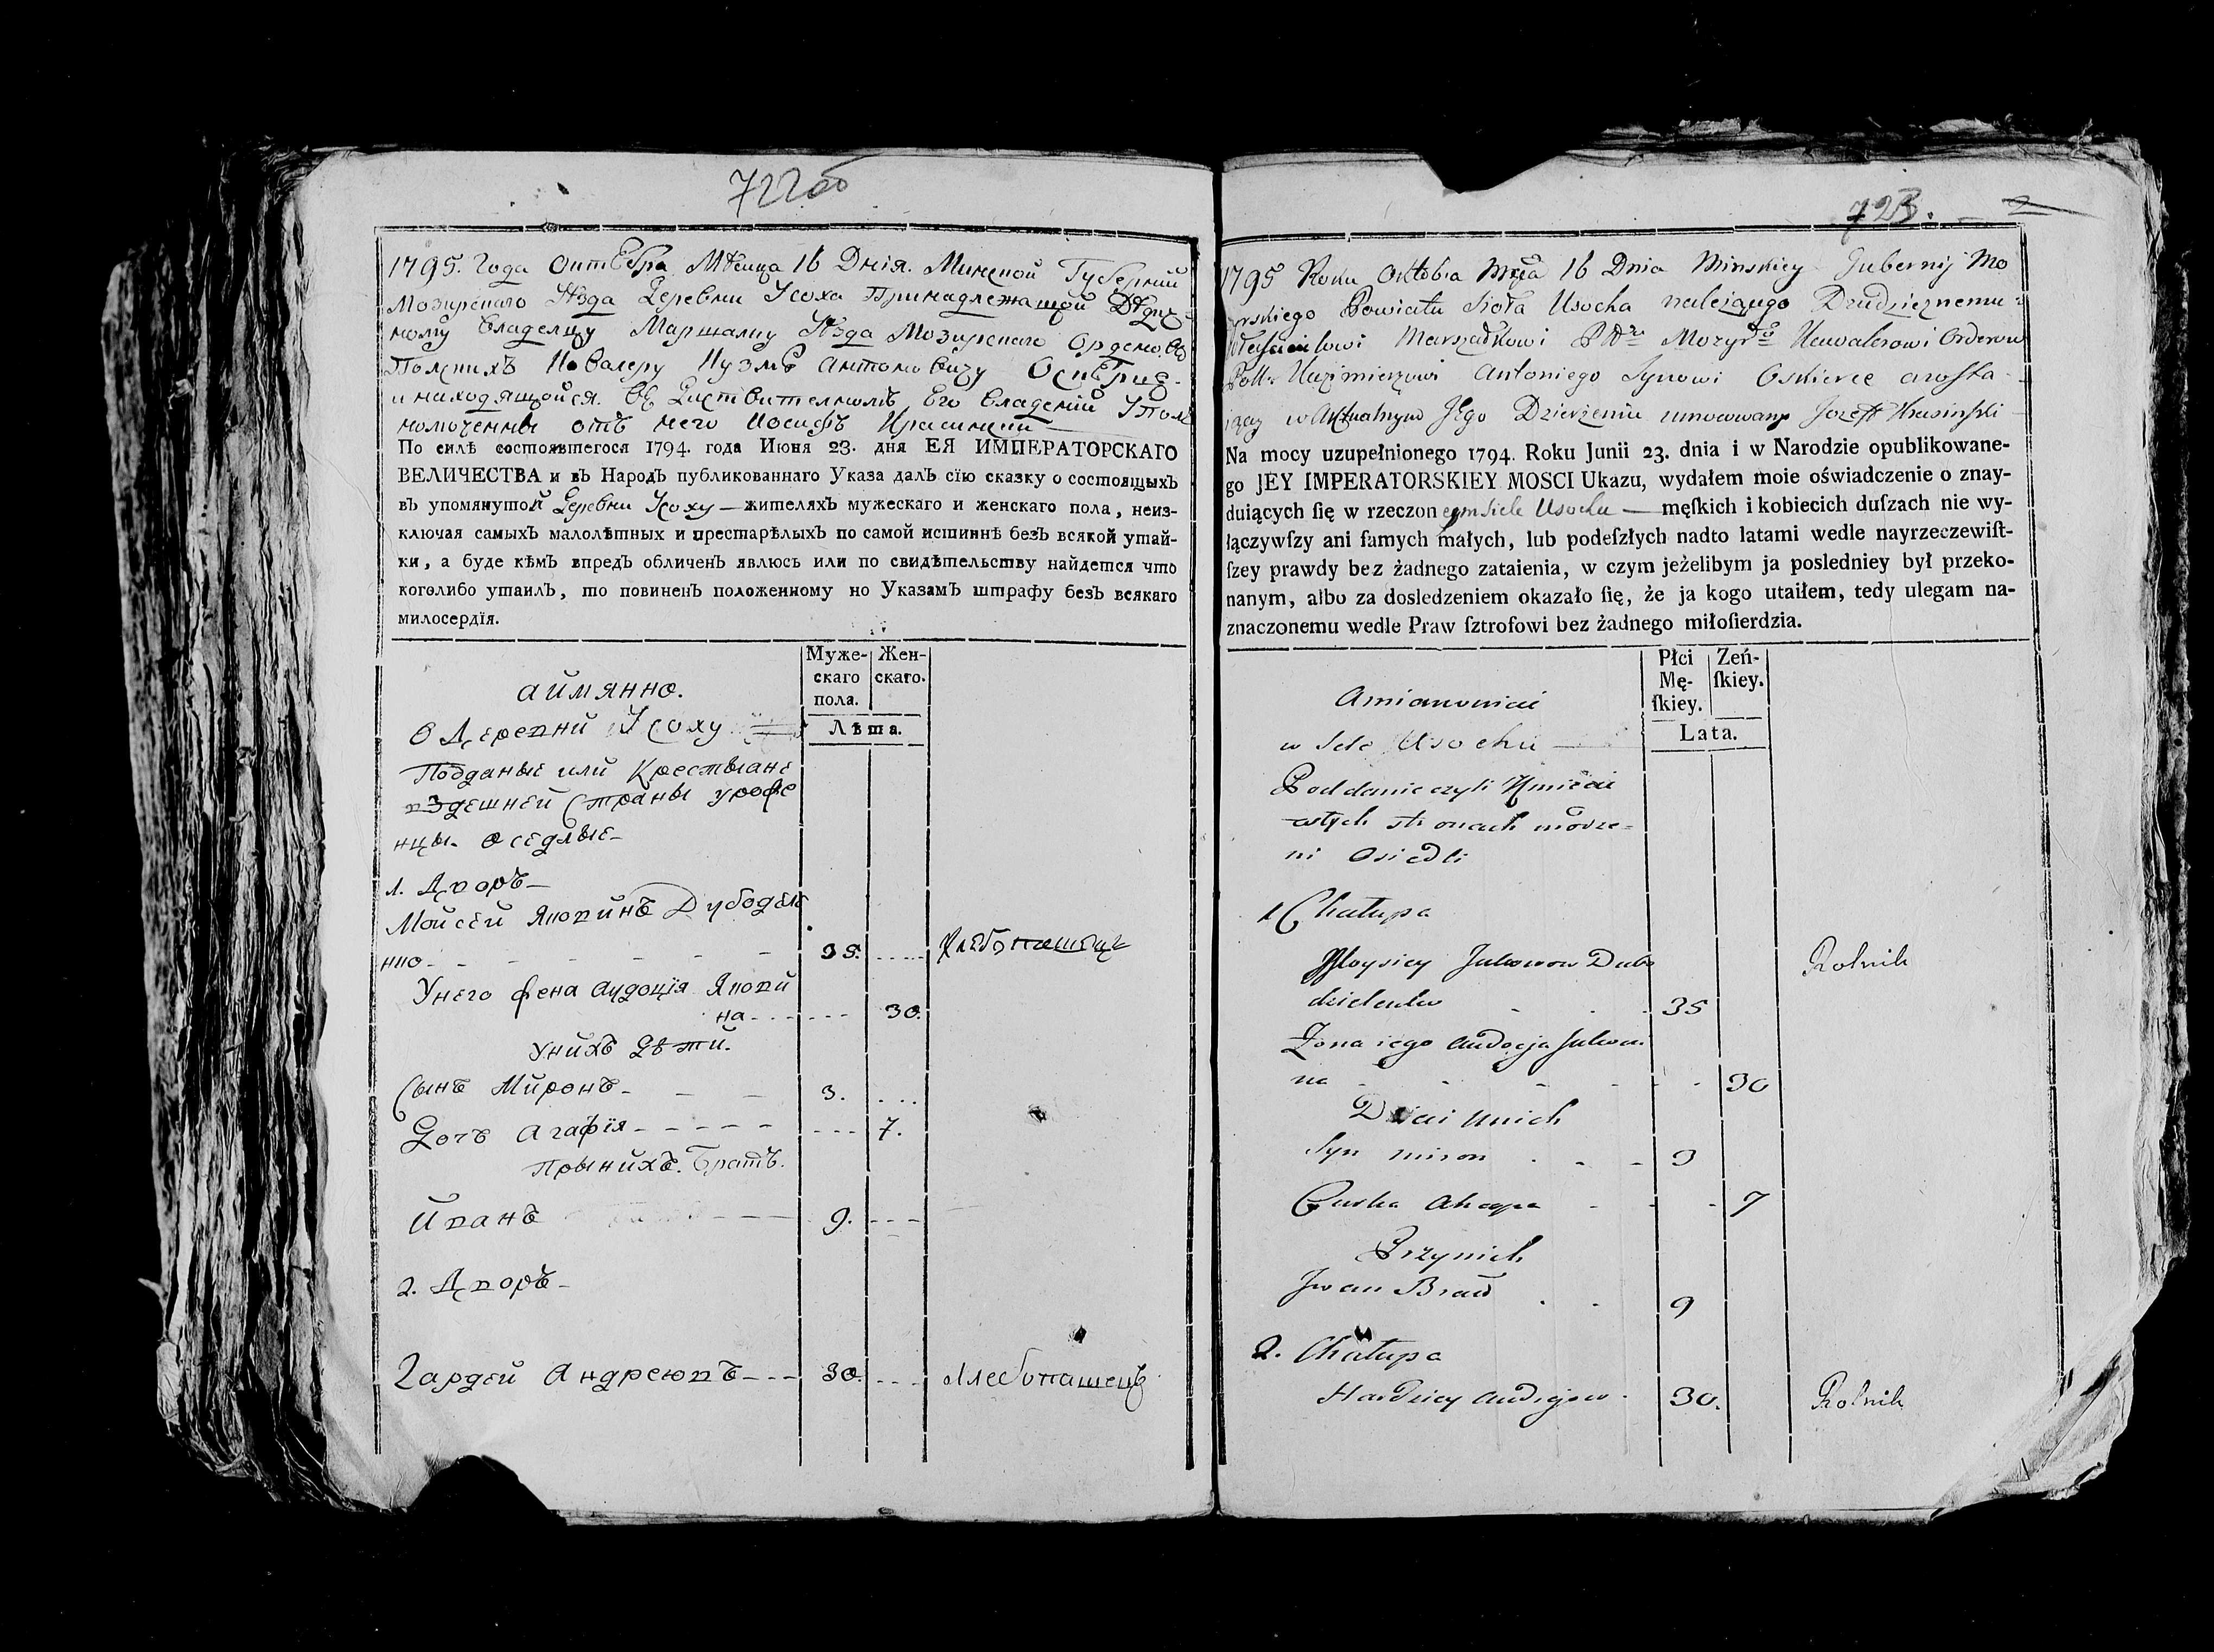 722об
1795. Года Октебра Мѣсица 16 Днія. Минской Губерній
Мозирскаго Уѣзда Деревни Усоха Принадлежащой Дѣдич
ному Владелцу Маршалку Уѣзда Мозирскаго Орденовъ
Полскихъ Кавалеру Кузмѣ Антоновичу Оскѣрце
и находящойся въ Дѣиствителномъ Его Владеніи Упол
номоченны отъ него Иосифъ Красинский
По силѣ состоявшегося 1794. года Июня 23. дня ЕЯ ИМПЕРАТОРСКАГО
ВЕЛИЧЕСТВА и въ Народъ публикованнаго Указа далъ сїю сказку о состоящыхъ
въ упомянутой Деревни Усоху — жителяхъ мужескаго и женскаго пола, неиз-
ключая самыхъ малолѣтных и престарѣлыхъ по самой истиннѣ безъ всякой утай-
ки, а буде кѣмъ впредъ обличенъ явлюсь или по свидѣтельству найдется что
коголибо утаилъ, то повиненъ положенному по Указамъ штрафу безъ всякаго
милосердїя.
Муже- Жен-
скаго скаго.
пола.
Лѣта.
аймянно.
О Деревни Усоху
Подданые или Крестьяне
вздешней страны урожe
нцы. Оседлые-
1. Дворъ-
Мойсей Яковинъ Дубодел
нко - - - - - - 35. .... Хлебопашецъ
Унего жена Аудоція Якови
на - - - - - - 30.
Унихъ дѣти.
Сынъ Миронъ - - - 3. ...
Дочь Агафія - - - - - - - - 7.
Прынихъ. Братъ.
Иванъ - - - 9. - - -
2. Дворъ-
Гардей Андреювъ - - - 30. - - - Хлебопашецъ
723. 2
1795 Roku Oktobra Mca 16 Dnia Minskiey Gubernij Mo
zyrskiego Powiatu Sioła Usocha należącego Dziedzicznemu
Właścicielowi Marszałkowi Pttu Mozyrgo Kawalerowi Orderow
Polł: Kazimierzowi Antoniego Synowi Oskierce a zosta-
iący w Aktualnym Jego Dzierżeniu umocowany Jozeff Krasinski
Na mocy uzupełnionego 1794. Roku Junii 23. dnia i w Narodzie opublikowane-
go JEY IMPERATORSKIEY MOSCI Ukazu, wydałem moie oświadczenie o znay-
duiących ſię w rzeczon eym Siele Usochu — męſkich i kobiecich duſzach nie wy-
łączywſzy ani ſamych małych, lub podeſzłych nadto latami wedle nayrzeczewiſt-
ſzey prawdy bez żadnego zataienia, w czym jeżelibym ja posledniey był przeko-
nanym, albo za dosledzeniem okazało ſię, że ja kogo utaiłem, tedy ulegam na-
znaczonemu wedle Praw ſztrofowi bez żadnego miłoſierdzia.
Płci Zeń-
Mę- ſkiey.
ſkiey.
Lata.
Amianowicie
w Sele Usochu —
Poddanie czyli Kmiecie
w tych stronach urodze-
ni Osiedli
1 Chałupa
Moysiey Jakowow Dubo Rolnik
dzielenko - - 35
Zona iego Audocja Jakow
na - - - - 30
Dzieci unich
Syn Miron - - - 3
Curka Ahapa - - - 7
Przynich
Jwan Brad - - 9
2. Chałupa
Hardziey Andrejow - 30. Rolnik